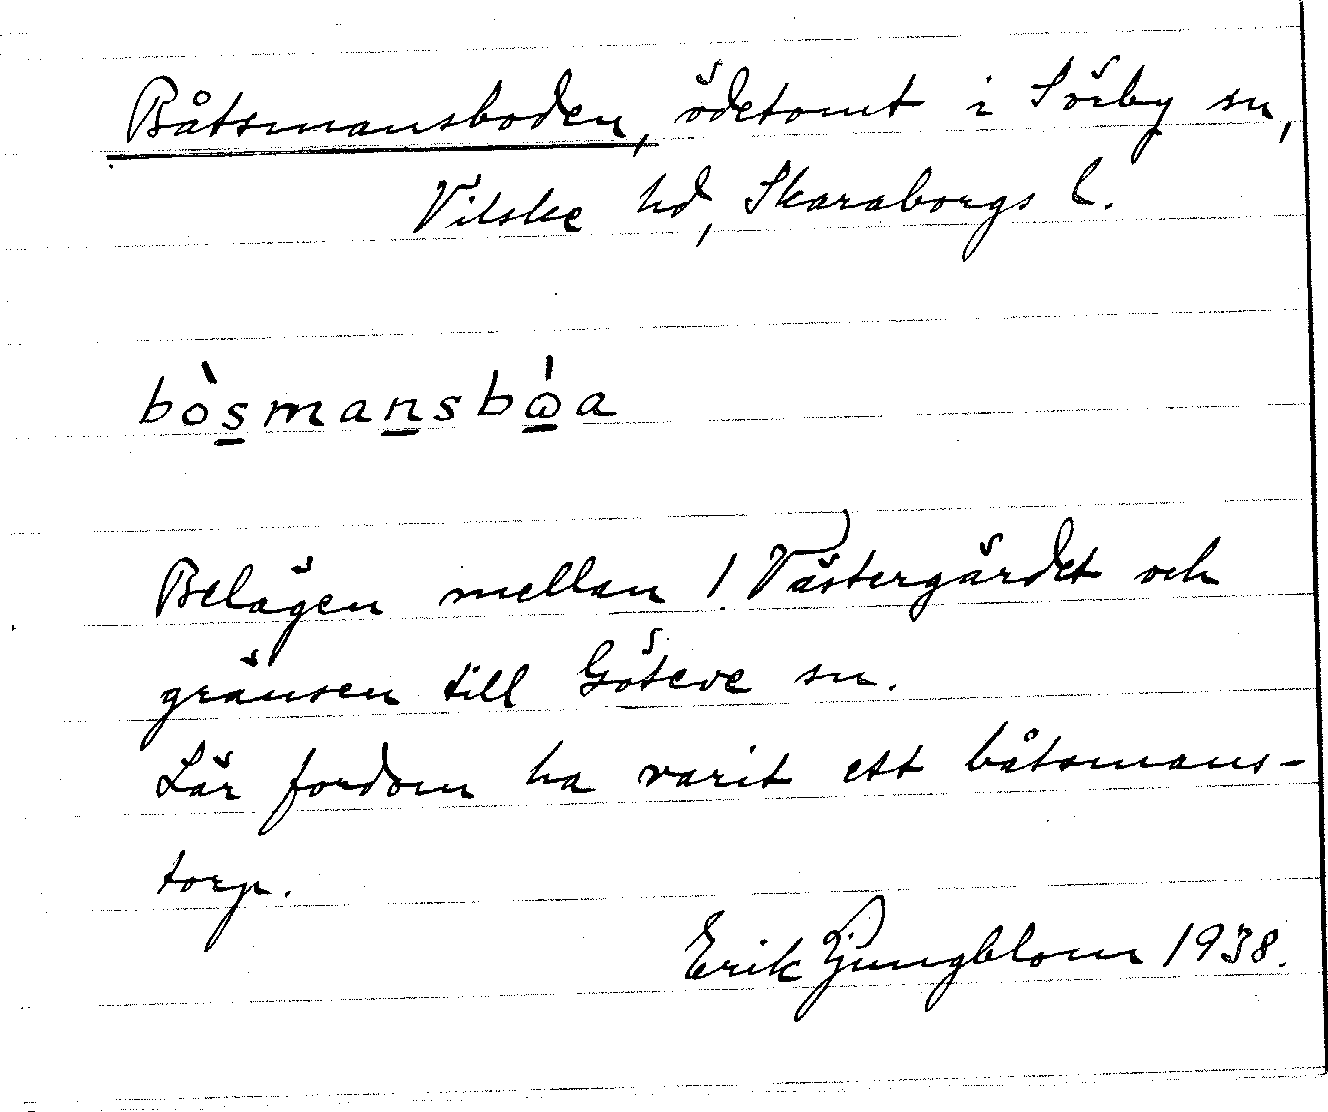 Båtsmansboden, ödetomt i Sörby sn,
Vilske hd, Skaraborgs l.
bòs̲man̲sbώ̲a
Belägen mellan 1 Västergärdet och
gränsen till Göteve sn.
Lär fordom ha varit ett båtsmans-
torp.
Erik Ljungblom 1938.